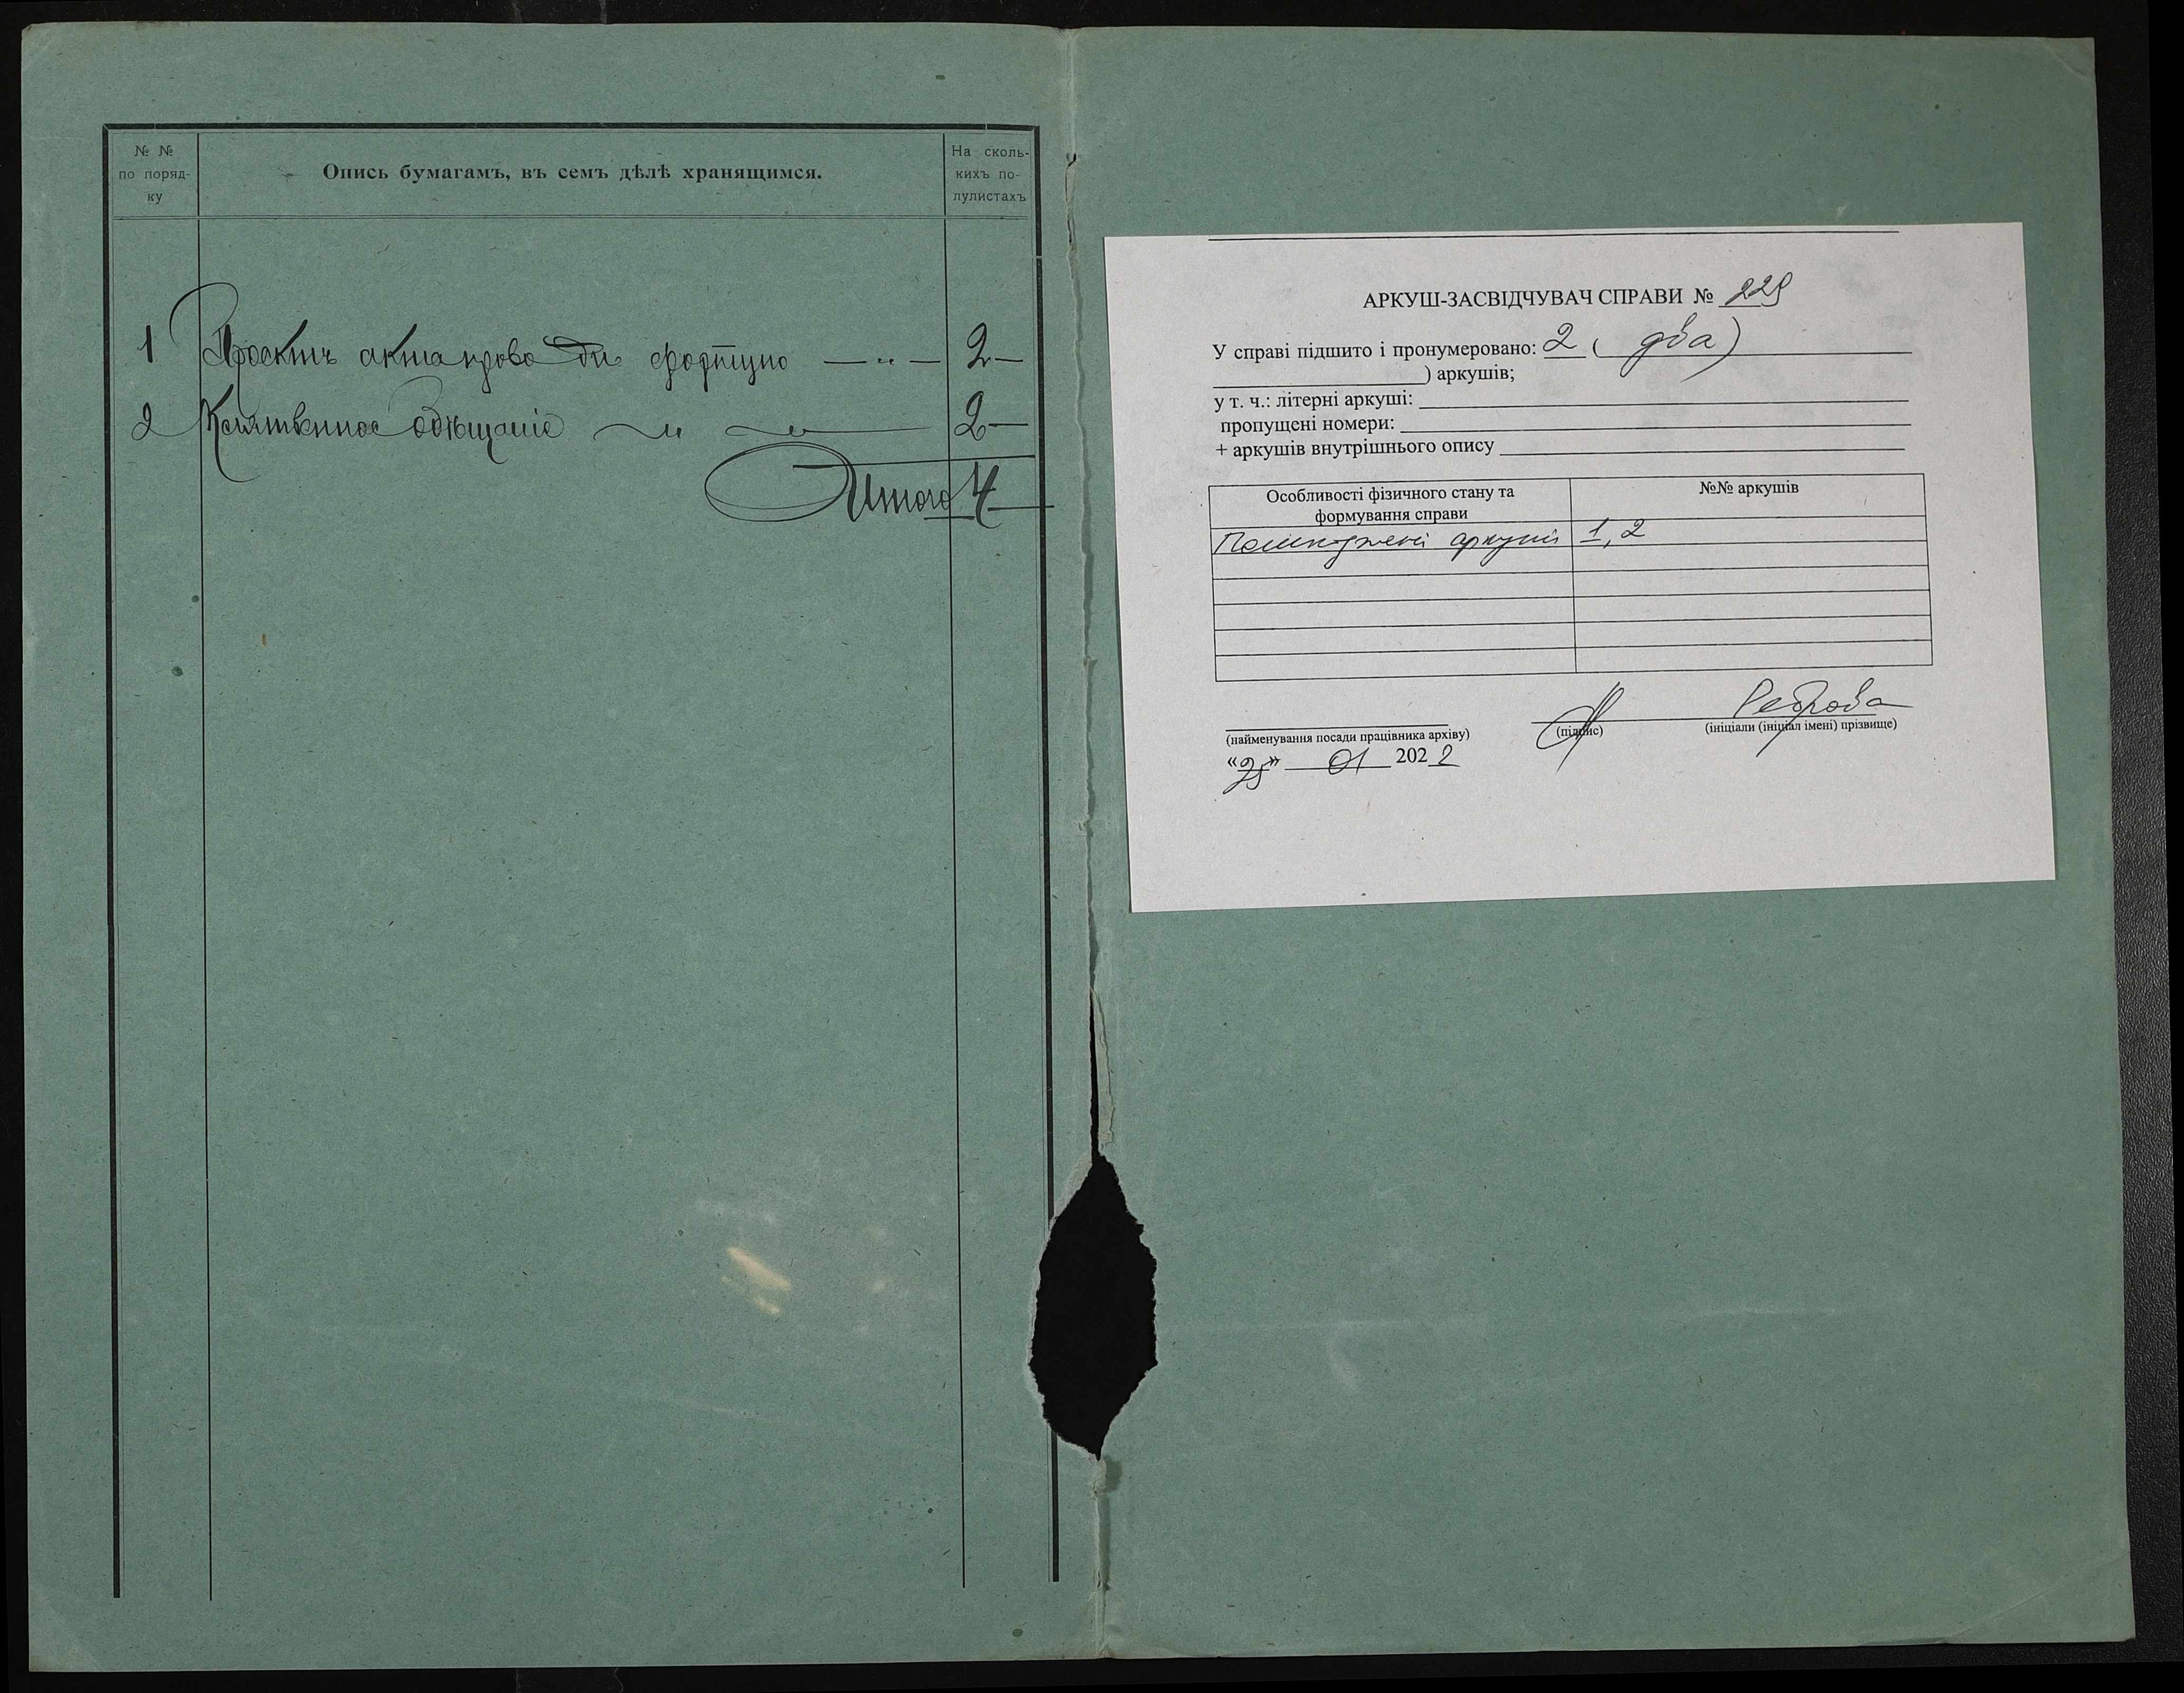 № №
по поряд-
ку
Опись бумагамъ, въ семъ дѣлѣ хранящимся.
На сколь-
кихъ по-
лулистахъ
1 Проектъ акта 2
2 Клятвенное Обѣщаніе 2
Итого 4
АРКУШ-ЗАСВІДЧУВАЧ СПРАВИ № 229
У справі підшито і пронумеровано: 2 ( два)
) аркушів;
у т. ч.: літерні аркуші:
пропущені номери:
+ аркушів внутрішнього опису
Особливості фізичного стану та
формування справи
№№ аркушів
Пошкоджені аркуші 1, 2
Реброва
(найменування посади працівника архіву) (підпис) (ініціали (ініціал імені) прізвище)
«25» 01 2022